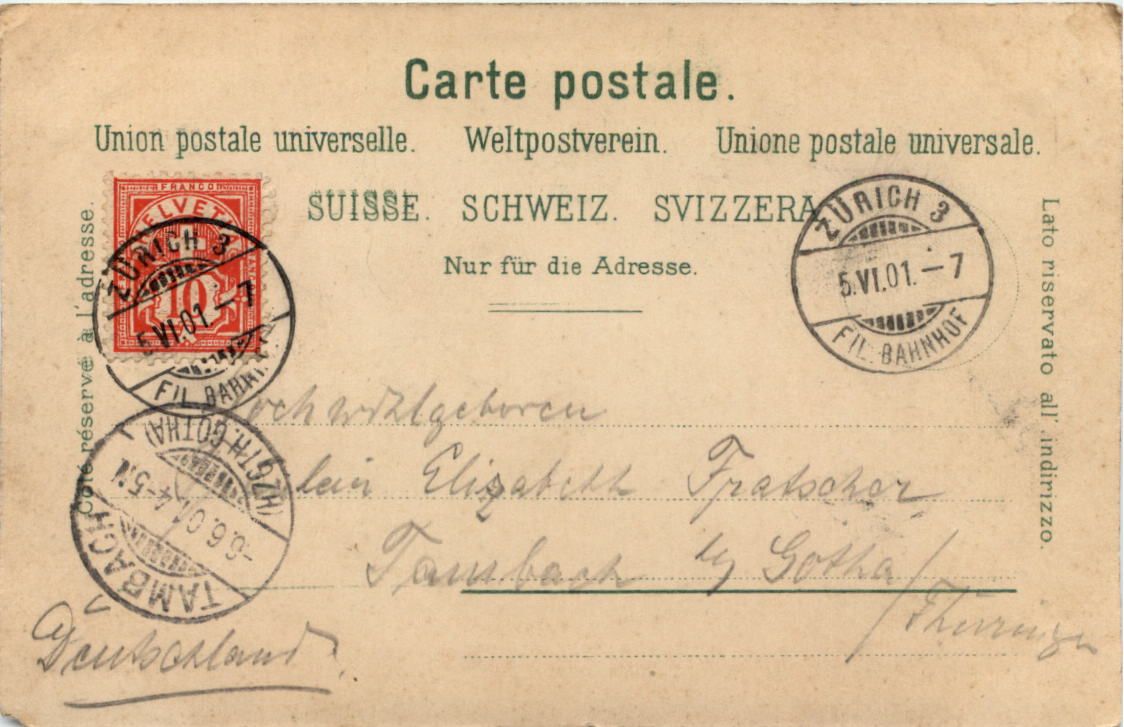 Carte postale.
Union postale universelle. Weltpostverein. Unione postale universale.
SUISSE. SCHWEIZ. SVIZZERA
Nur für die Adresse.
Côté réservé à l'adresse.
Lato riservato all' indirizzo.
FRANCO
HELVETIA
10
ZÜRICH 3
5.VI.01.–7
FIL. BAHNHOF
ZÜRICH 3
5.VI.01.–7
FIL. BAHNHOF
TAMBACH
-6.6.01.4-5.N
(HZGTH. GOTHA)
ochwohlgeboren
lein Elisabeth Fratscher
Tambach by Gotha/
/Thüringen
Deutschland.